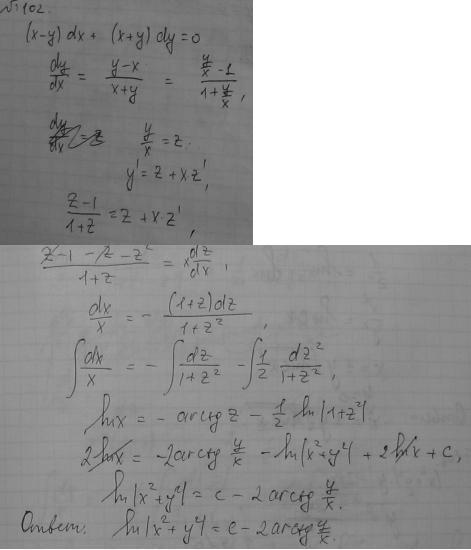 №102.
(x-y) dx + (x+y) dy = 0
dy/dx = (y-x)/(x+y) = (y/x - 1)/(1 + y/x),
y/x = z.
y' = z + x·z',
(z-1)/(1+z) = z + x·z',
(z-1-z-z²)/(1+z) = x dz/dx,
dx/x = - (1+z)dz/(1+z²),
∫dx/x = - ∫dz/(1+z²) - ∫1/2 dz²/(1+z²),
ln x = - arctg z - 1/2 ln|1+z²|
2ln x = -2arctg y/x - ln|x²+y²| + 2ln x + c,
ln|x²+y²| = c - 2arctg y/x.
Ответ: ln|x²+y²| = c - 2arctg y/x.